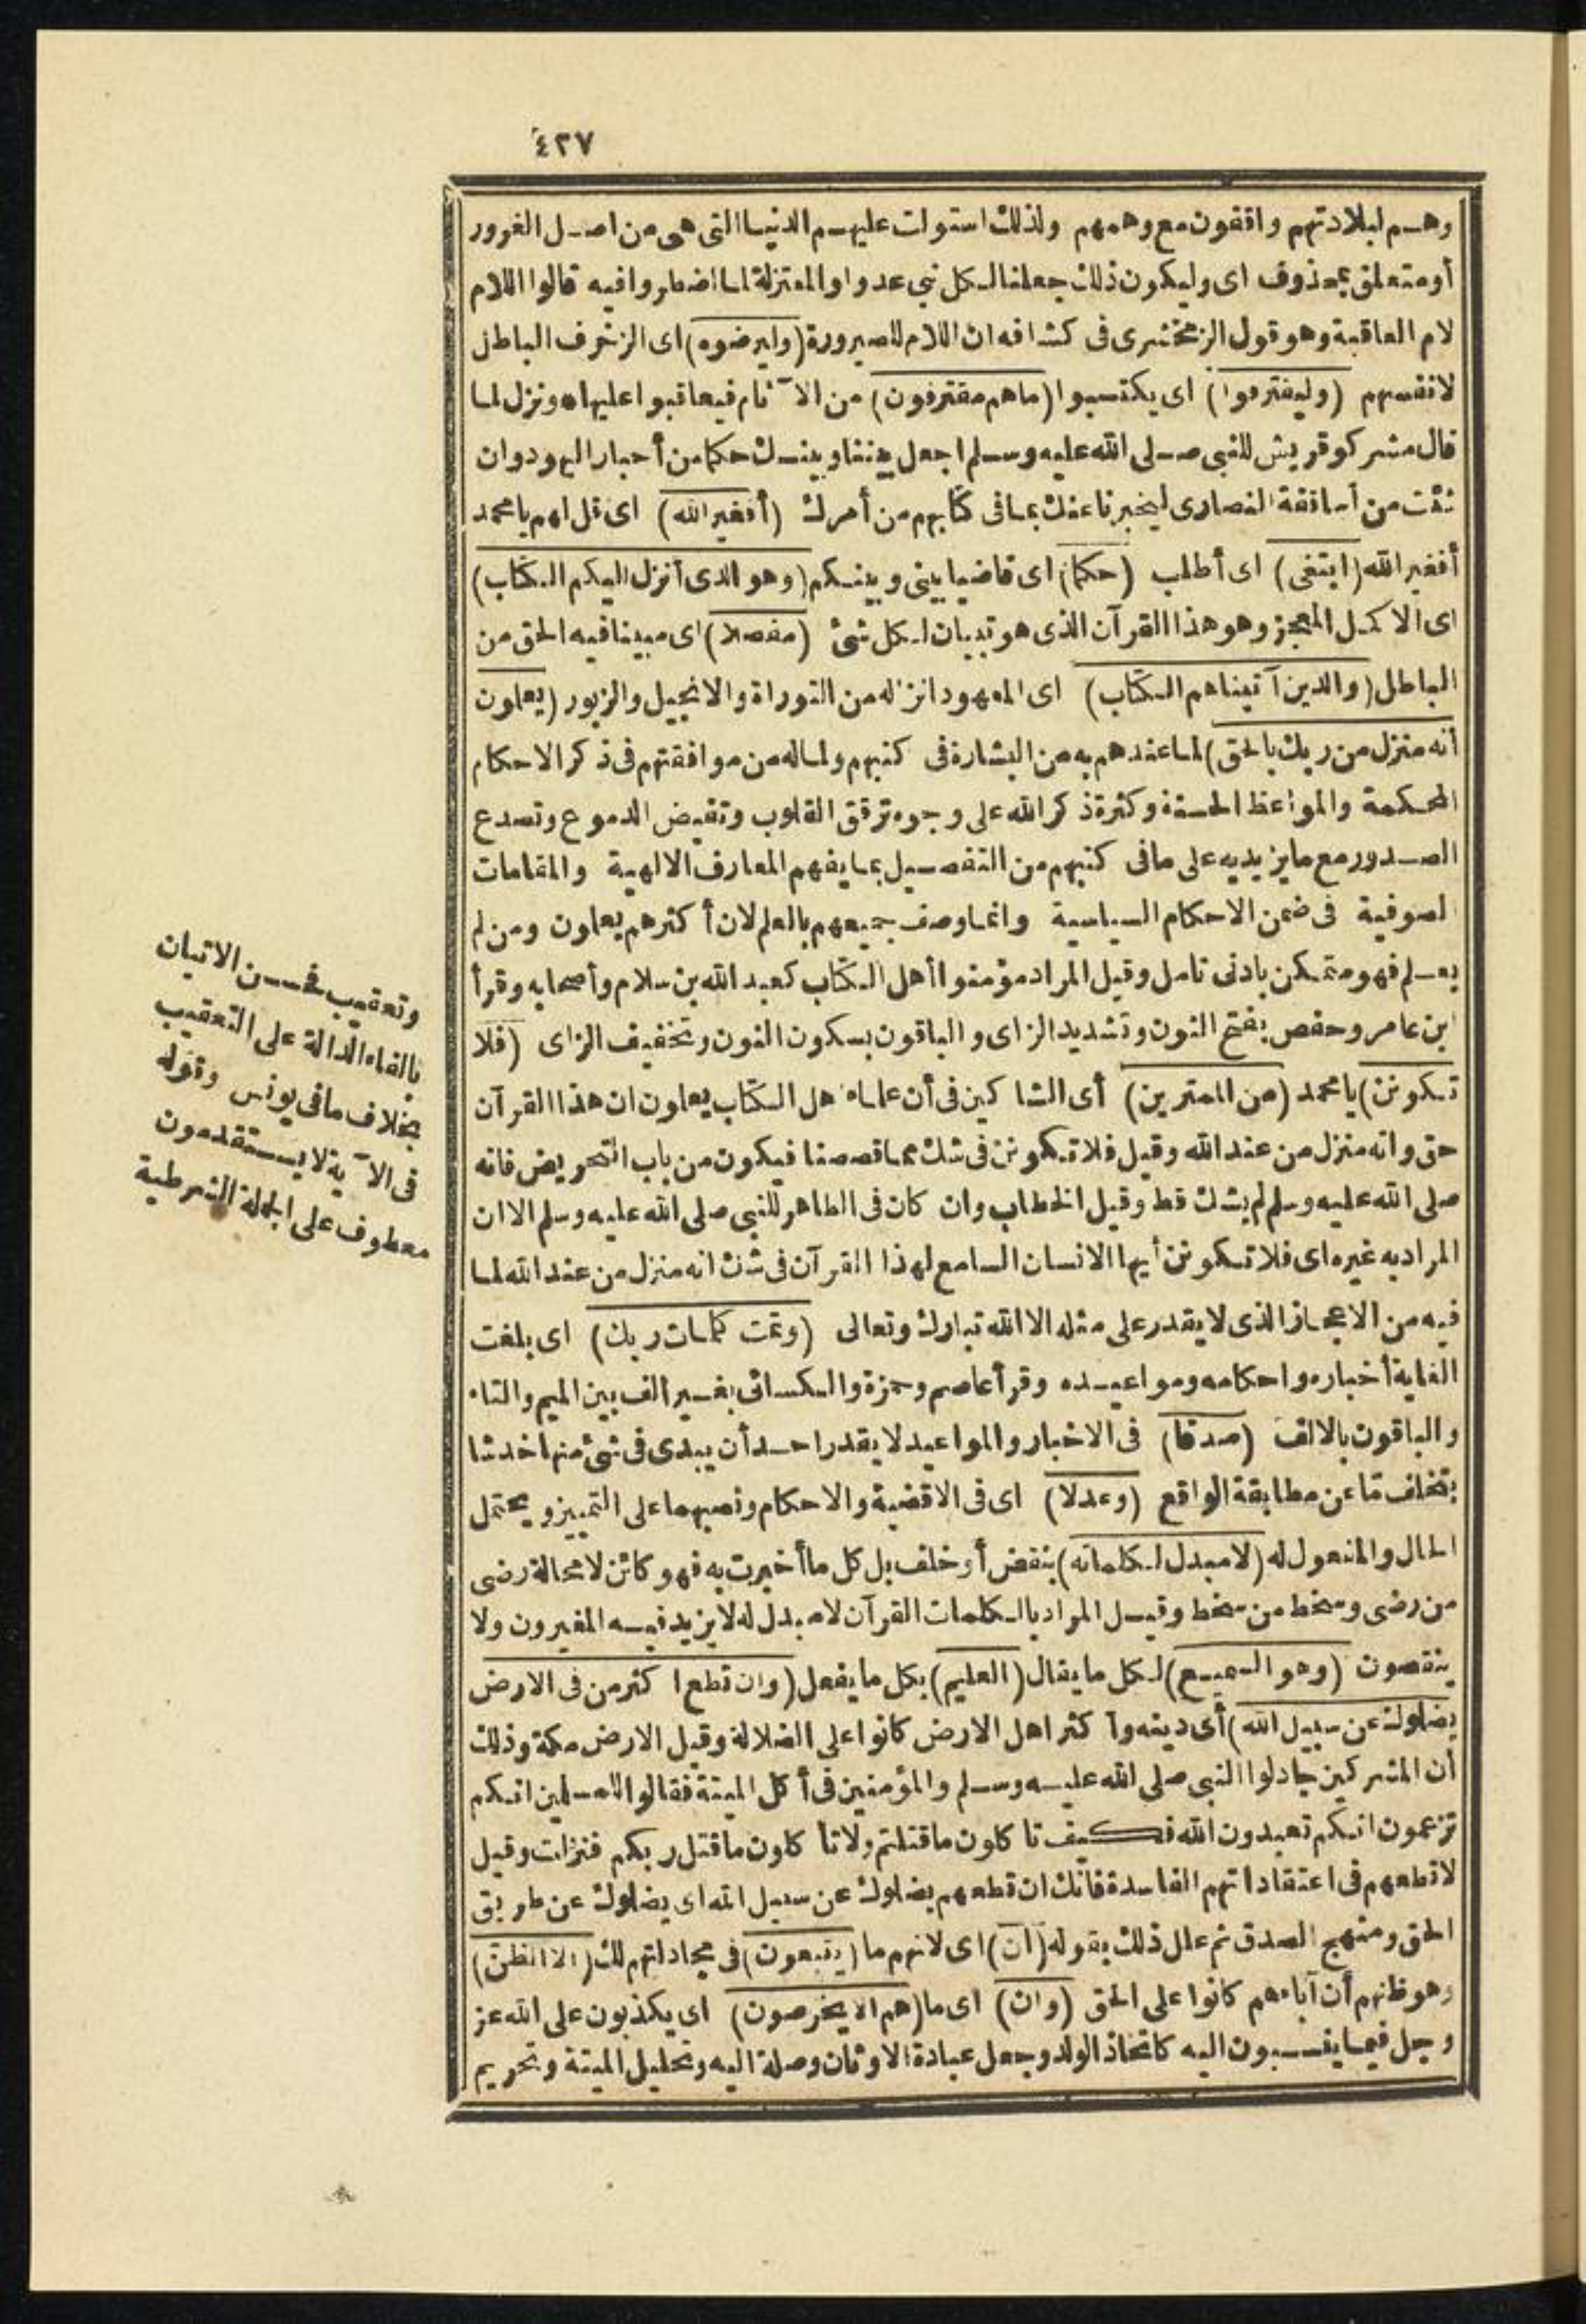 ٤٢٧
وهم لبلادتهم واقفون مع وهمهم ولذلك استولت عليهم الدنيا التى هى من اصل الغرور
أو متعلق بمحذوف اى وليكون ذلك جعلنا لكل نبي عدوا والمعتزلة لما اضطروا فيه قالوا اللام
لام العاقبة وهو قول الزمخشرى فى كشافه ان اللام للصيرورة (وليرضوه) اى الزخرف الباطل
لانفسهم (وليقترفوا) اى يكتسبوا (ماهم مقترفون) من الآثام فيعاقبوا عليها ونزل لما
قال مشركو قريش للنبى صلى الله عليه وسلم اجعل بيننا وبينك حكما من أحبار اليهود وان
شئت من أساقفة النصارى ليخبرنا عنك بما فى كتابهم من أمرك (أفغير الله) اى قل لهم يا محمد
أفغير الله (ابتغى) اى أطلب (حكما) اى قاضيا بينى وبينكم (وهو الذى أنزل اليكم الكتاب)
اى الاكمل المعجز وهو هذا القرآن الذى هو تبيان لكل شئ (مفصلا) اى مبينا فيه الحق من
الباطل (والذين آتيناهم الكتاب) اى المعهود انزاله من التوراة والانجيل والزبور (يعلمون
أنه منزل من ربك بالحق) لما عندهم به من البشارة فى كتبهم ولما له من موافقتهم فى ذكر الاحكام
المحكمة والمواعظ الحسنة وكثرة ذكر الله على وجوه ترقق القلوب وتفيض الدموع وتصدع
الصدور مع مايزيد به على مافى كتبهم من التفصيل بما يفهم المعارف الالهية والمقامات
الصوفية فى ضمن الاحكام السياسية وانما وصف جميعهم بالعلم لان أكثرهم يعلمون ومن لم
يعلم فهو متمكن بادنى تامل وقيل المراد مؤمنوا أهل الكتاب كعبد الله بن سلام وأصحابه وقرأ
ابن عامر وحفص بفتح النون وتشديد الزاى والباقون بسكون النون وتخفيف الزاى (فلا
تكونن) يا محمد (من الممترين) أى الشاكين فى أن علماء أهل الكتاب يعلمون ان هذا القرآن
حق وانه منزل من عند الله وقيل فلا تكونن فى شك مما قصصنا فيكون من باب التحريض فانه
صلى الله عليه وسلم لم يشك قط وقيل الخطاب وان كان فى الظاهر للنبى صلى الله عليه وسلم الا ان
المراد به غيره اى فلا تكونن أيها الانسان السامع لهذا القرآن فى شك انه منزل من عند الله لما
فيه من الاعجاز الذى لا يقدر على مثله الا الله تبارك وتعالى (وتمت كلمات ربك) اى بلغت
الغاية أخباره واحكامه ومواعيده وقرأ عاصم وحمزة والكسائى بغير الف بين الميم والتاء
والباقون بالالف (صدقا) فى الاخبار والمواعيد لا يقدر احد أن يبدى فى شئ منها خدشا
بتخلف ما عن مطابقة الواقع (وعدلا) اى فى الاقضية والاحكام ونصبهما على التمييز ويحتمل
الحال والمفعول له (لا مبدل لكلماته) بنقض أو خلف بل كل ما أخبرت به فهو كائن لا محالة رضى
من رضى وسخط من سخط وقيل المراد بالكلمات القرآن لا مبدل له لا يزيد فيه المغيرون ولا
ينقصون (وهو السميع) لكل ما يقال (العليم) بكل ما يفعل (وان تطع أكثر من فى الارض
يضلوك عن سبيل الله) أى دينه وأكثر اهل الارض كانوا على الضلالة وقيل الارض مكة وذلك
أن المشركين جادلوا النبى صلى الله عليه وسلم والمؤمنين فى أكل الميتة فقالوا للمسلمين انكم
تزعمون انكم تعبدون الله فكيف تأكلون ماقتلتم ولا تأكلون ماقتل ربكم فنزلت وقيل
لا تطعهم فى اعتقاداتهم الفاسدة فانك ان تطعهم يضلوك عن سبيل الله اى يضلوك عن طريق
الحق ومنهج الصدق ثم علل ذلك بقوله (ان) اى لانهم ما (يتبعون) فى مجادلتهم لك (الا الظن)
وهو ظنهم أن آباءهم كانوا على الحق (وان) اى ما (هم الا يخرصون) اى يكذبون على الله عز
وجل فيما ينسبون اليه كاتخاذ الولد وجعل عبادة الاوثان وصلة اليه وتحليل الميتة وتحريم
وتعقيب فحسن الاتيان
بالفاء الدالة على التعقيب
بخلاف مافى يونس وقوله
فى الآية لا يستقدمون
معطوف على الجملة الشرطية